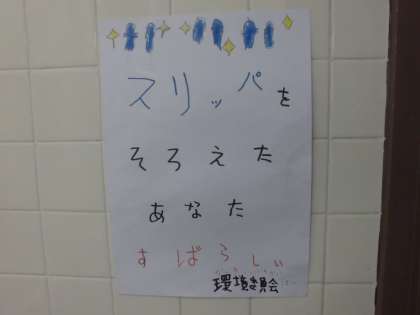 スリッパを
そろえた
あなた
すばらしい
環境委員会